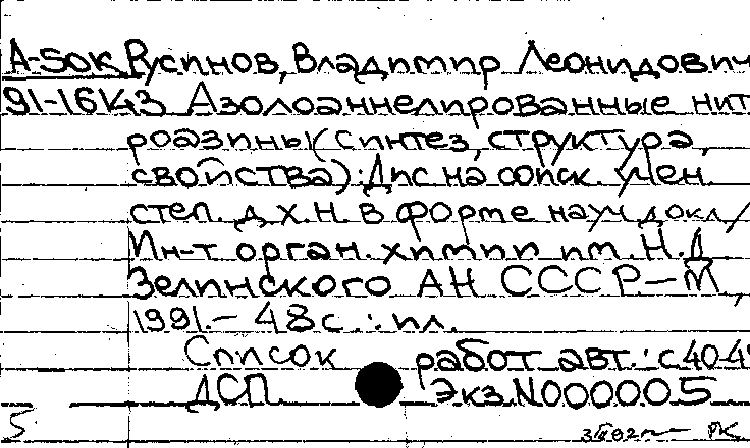 А-50К Русинов, Владимир Леонидович
91-16143 Азолоаннелированные нит
роазины (синтез, структура,
свойства): Дис на соиск. учен.
степ. д.х.н. в форме науч докл/
Ин-т орган. химии им. Н.Д
Зелинского АН СССР — М,
1991. – 48 с. : ил.
Список работ авт.: с 40-4
ДСП Экз. N000005
5